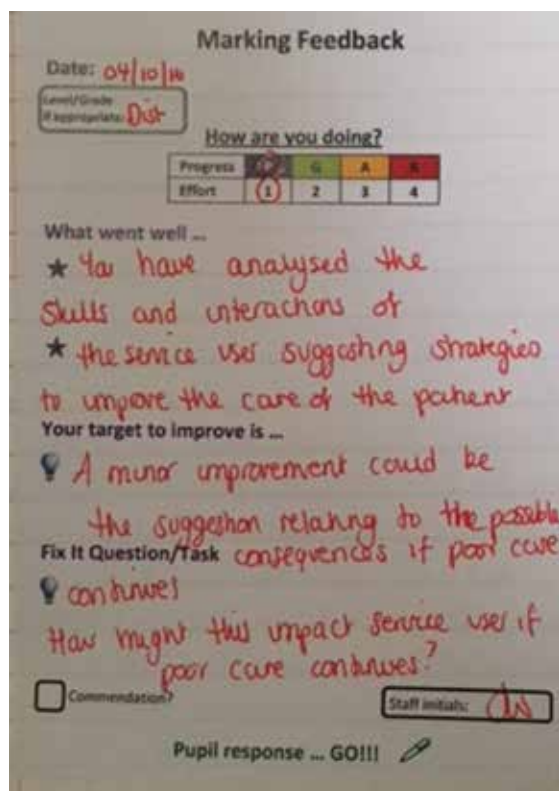 Marking Feedback
Date: 04/10/16
Level/Grade
if appropriate: Dist
How are you doing?
Progress G A R
Effort 1 2 3 4
What went well ...
★ You have analysed the
skills and interactions of
★ the service user suggesting strategies
to improve the care of the patient
Your target to improve is ...
A minor improvement could be
the suggestion relating to the possible
Fix It Question/Task consequences if poor care
continues
How might this impact service user if
poor care continues?
Commendation?
Staff initials:
Pupil response ... GO!!!